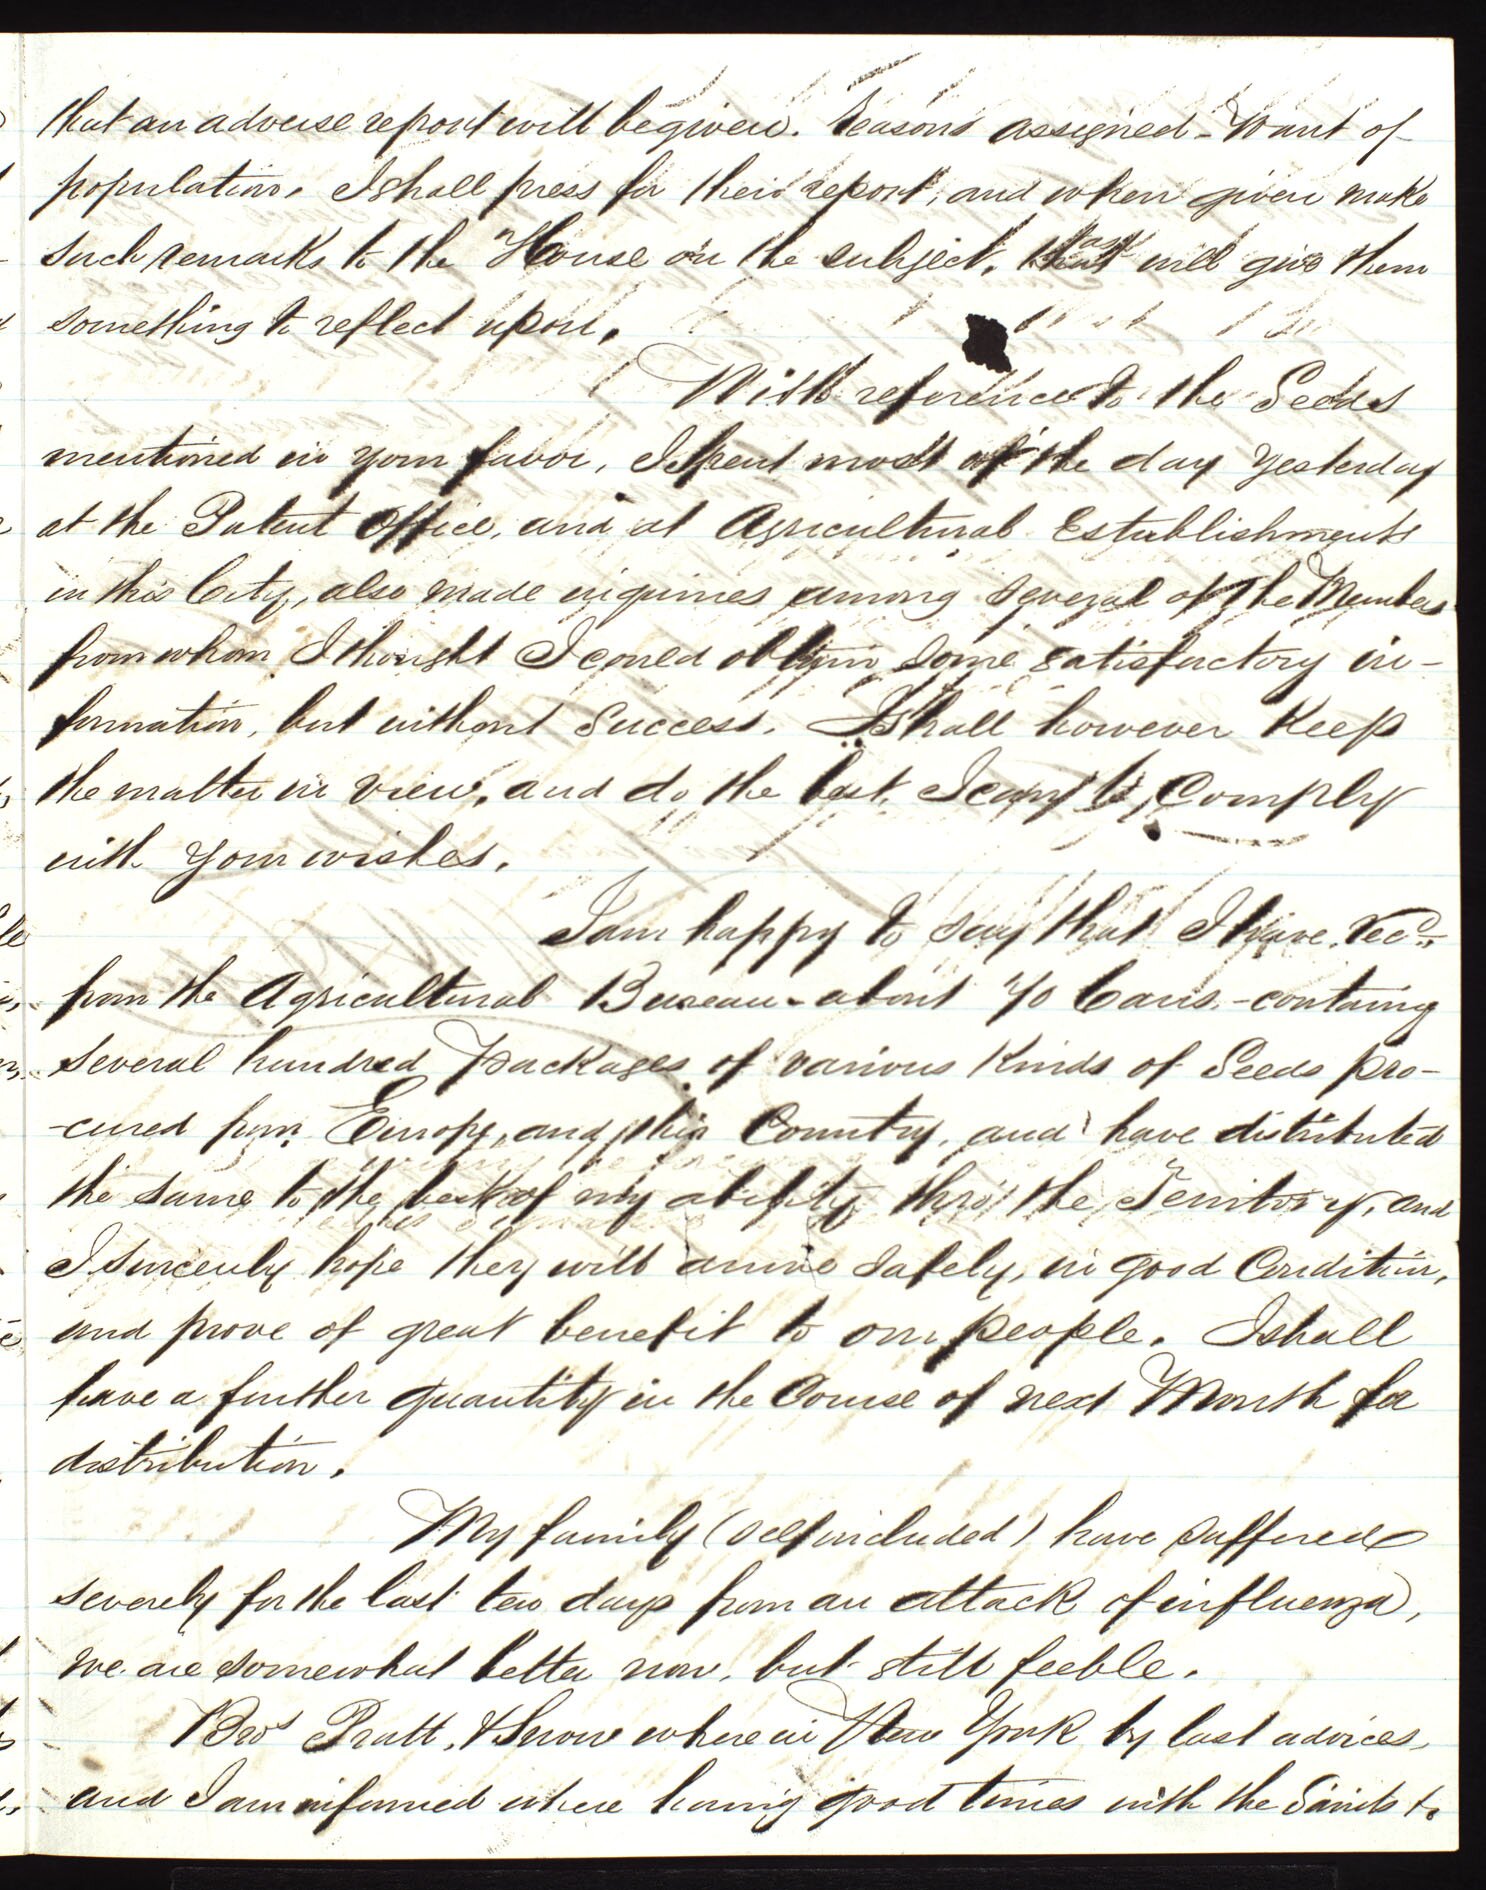 that an adverse report will be given. Reasons assigned - Want of
population. I shall press for their report, and when given make
such remarks to the House on the subject, as will give them
something to reflect upon.
With reference to the Seeds
mentioned in your favor, I spent most of the day yesterday
at the Patent Office, and at Agricultural Establishments
in this City, also made inquiries among several of the Members
from whom I thought I could obtain some satisfactory in-
formation, but without success. I shall however Keep
the matter in view, and do the best I can to Comply
with your wishes.
I am happy to say that I have recd.
from the Agricultural Bureau - about 70 Cans - containg
several hundred packages of various Kinds of Seeds pro-
-cured from Europe, and this Country, and have distributed
the same to the best of my ability thro' the Territory, and
I sincerely hope they will arrive safely, in good Condition,
and prove of great benefit to our people. I shall
have a further quantity in the Course of next Month for
distribution.
My family (self included) have suffered
severely for the last ten days from an attack of influenza,
we are somewhat better now, but still feeble.
Bros Pratt, & Snow where in New York by last advices,
and I am informed where having good times with the Saints to